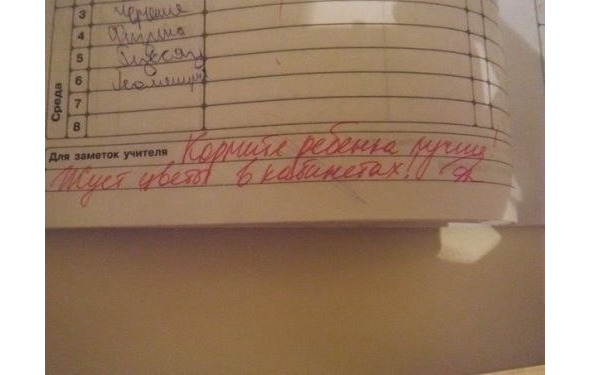 3 Чтение
4 Физика
5 Русский
6 Геометрия
7
8
Среда
Для заметок учителя Кормите ребенка лучше!
Жует цветы в кабинетах!